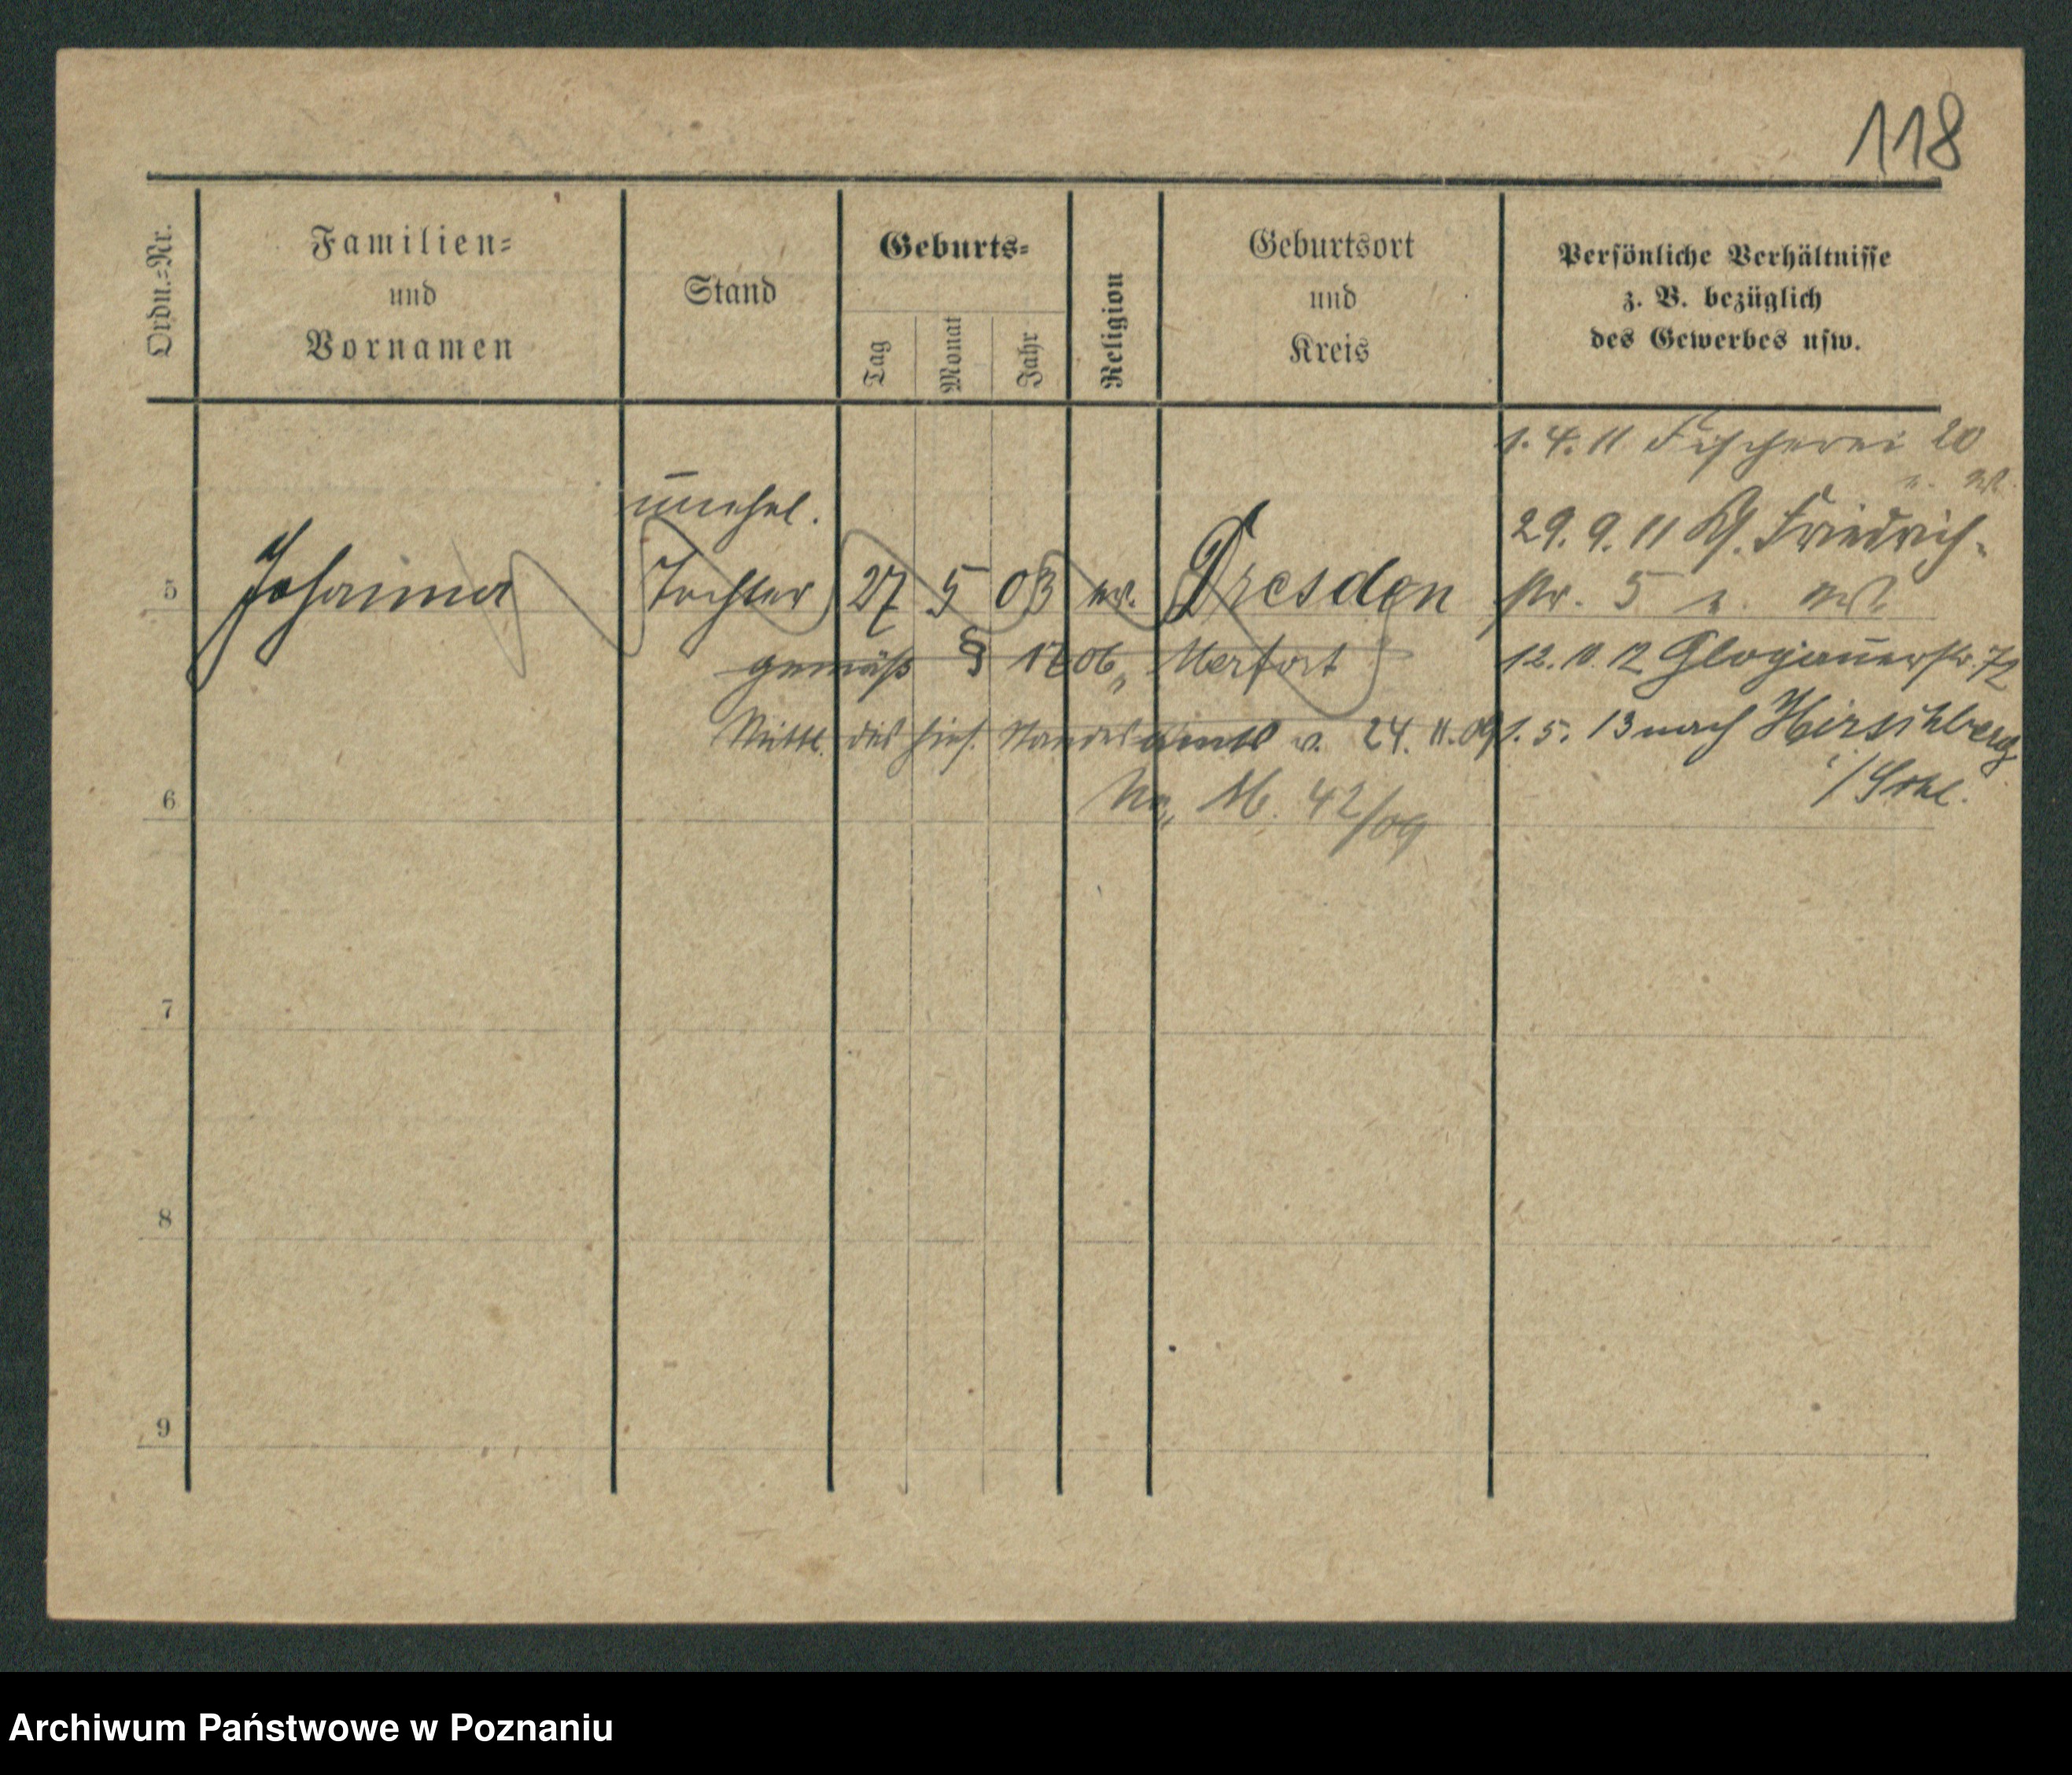 118
Ordn.=Nr.
Familien=
und
Vornamen
Stand
Geburts=
Tag
Monat
Jahr
Religion
Geburtsort
und
Kreis
Persönliche Verhältnisse
z. B. bezüglich
des Gewerbes usw.
1. 4. 11 Fischerei 20
unehel.
29. 9. 11 Friedrich-
5 Johanna Tochter 27 5 03 ev. Dresden str. 5
gemäß § 1706 Merfort
Glogauerstr.
Mittl. des hies. Standesamts v. 24. 11. 09
1. 5. 13 nach Hirschberg
i/Schl.
6 42/09
7
8
9
Archiwum Państwowe w Poznaniu